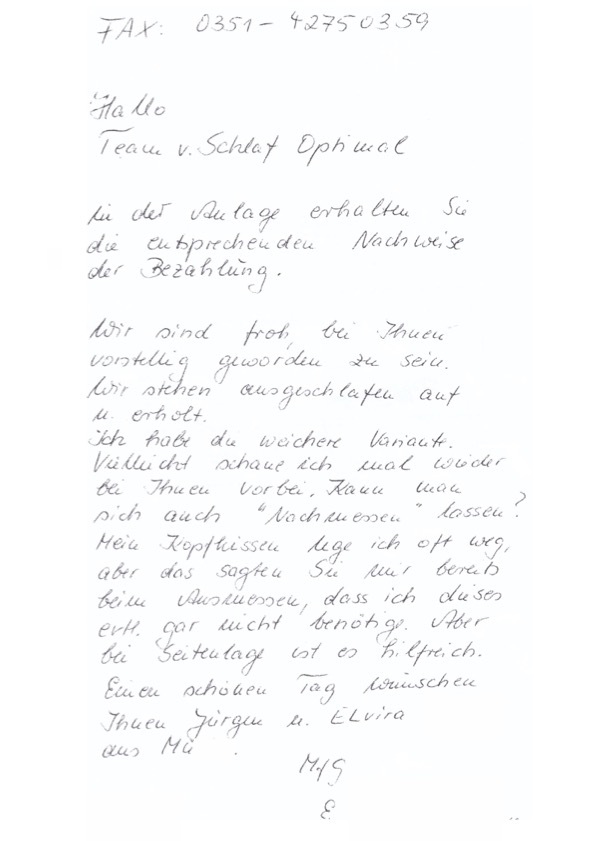 FAX: 0351-42750359
Hallo
Team v. Schlaf Optimal
in der Anlage erhalten Sie
die entsprechenden Nachweise
der Bezahlung.
Wir sind froh, bei Ihnen
vorstellig geworden zu sein.
Wir stehen ausgeschlafen auf
u. erholt.
Ich habe die weichere Variante.
Vielleicht schaue ich mal wieder
bei Ihnen vorbei. Kann man
sich auch "Nachmessen" lassen?
Mein Kopfkissen lege ich oft weg,
aber das sagten Sie mir bereits
beim Ausmessen, dass ich dieses
evtl. gar nicht benötige. Aber
bei Seitenlage ist es hilfreich.
Einen schönen Tag wünschen
Ihnen Jürgen u. Elvira
aus Mü .
MfG
E